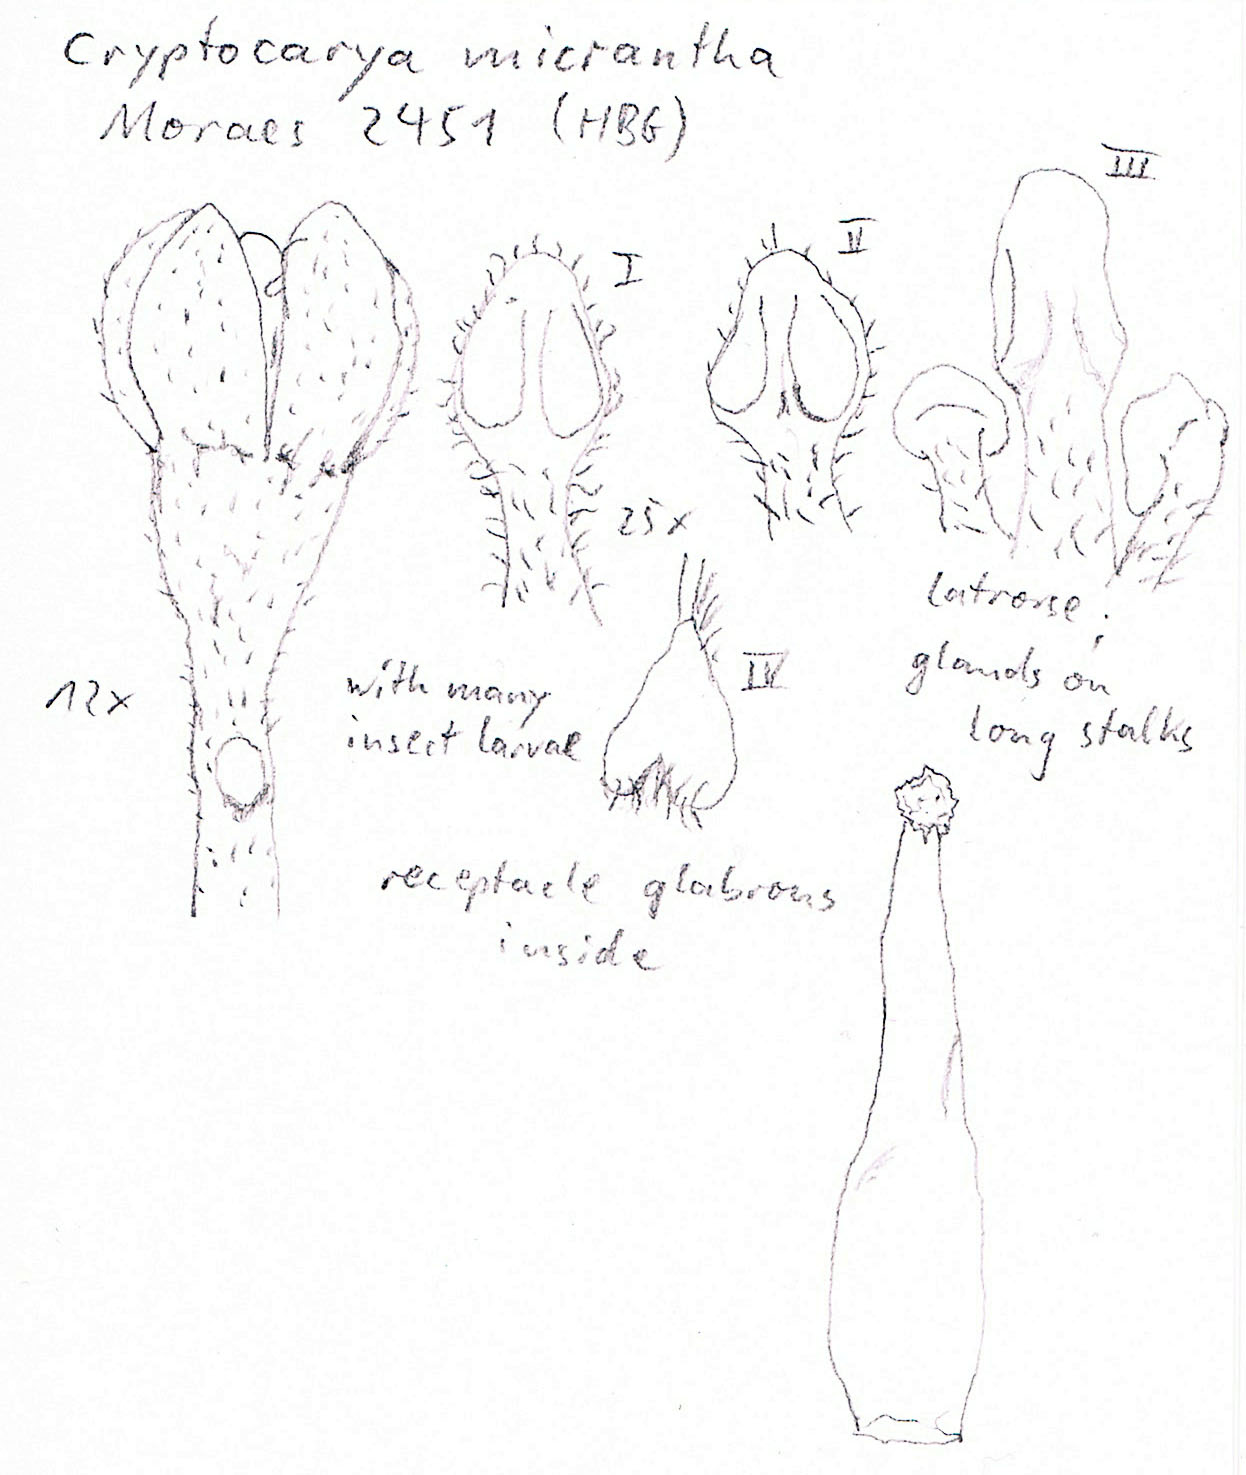 Cryptocarya micrantha
Moraes 2451 (HBG)
III
II
I
25x
latrorse;
glands on
long stalks
IV
12x
with many
insect larvae
receptacle glabrous
inside